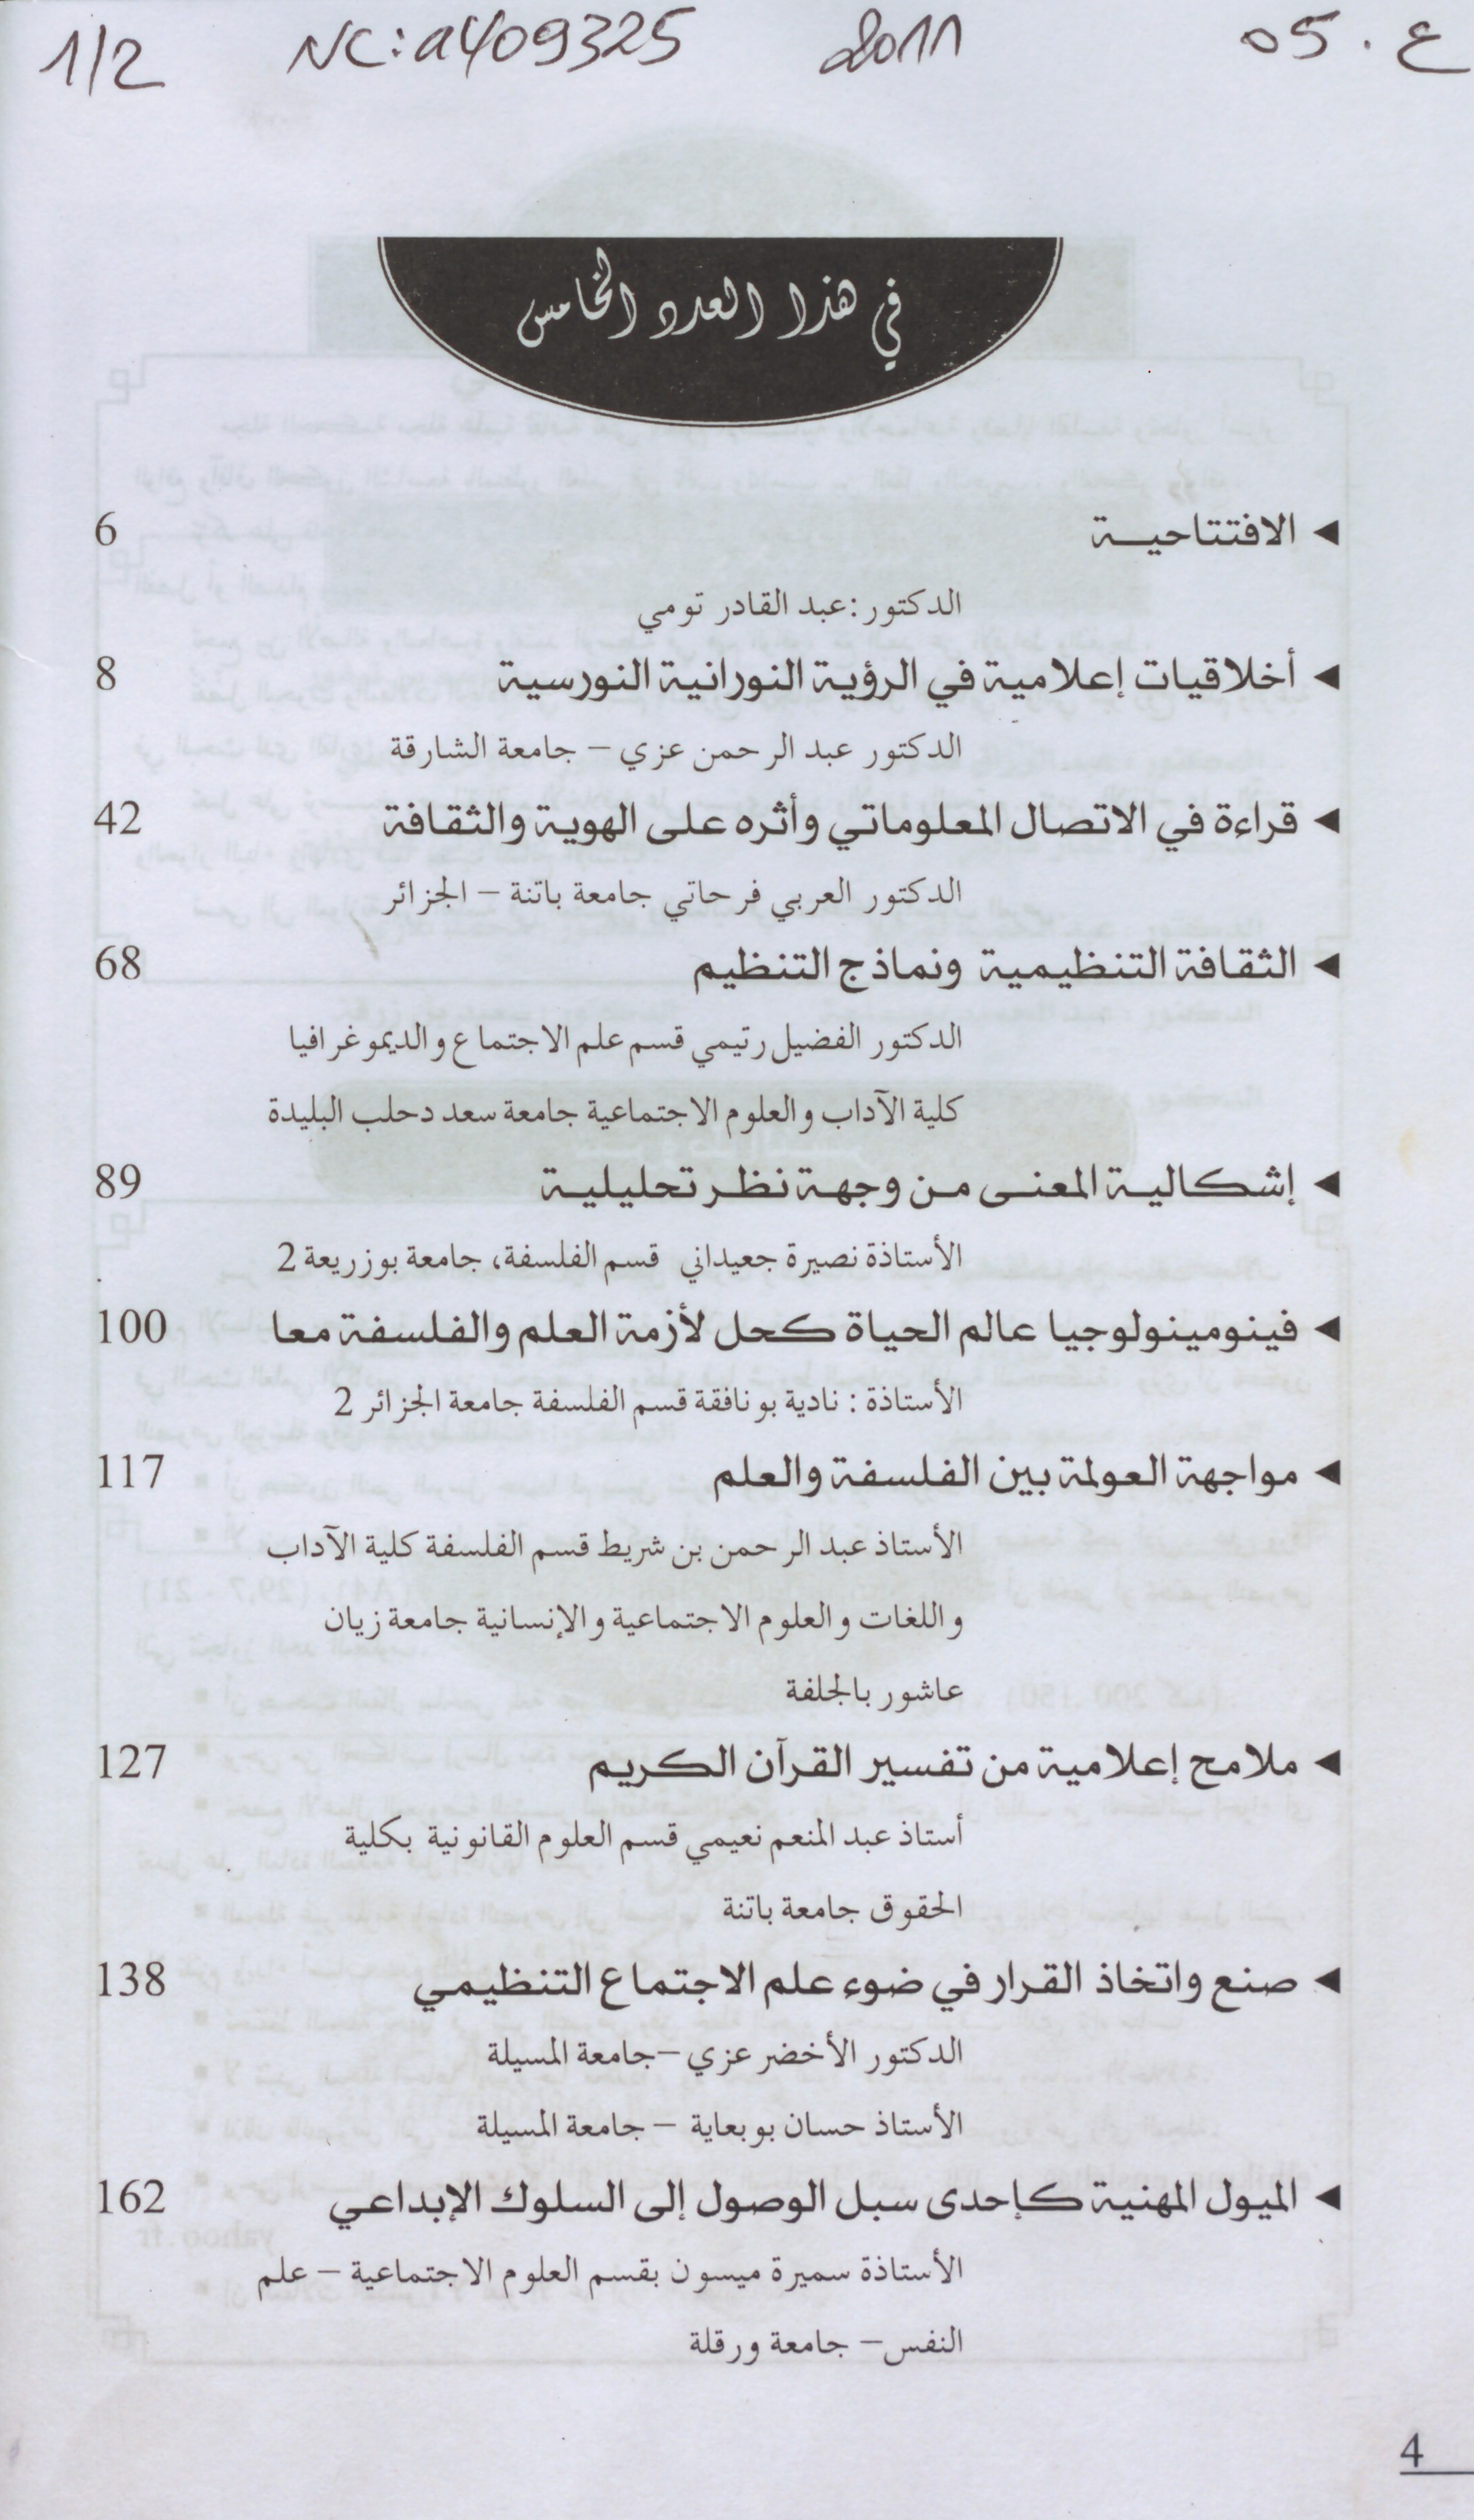 1/2 NC:a409325 2011 ع. 05
في هذا العدد الخامس
◄ الافتتاحيـــة 6
الدكتور :عبد القادر تومي
◄ أخلاقيات إعلامية في الرؤية النورانية النورسية 8
الدكتور عبد الرحمن عزي – جامعة الشارقة
◄ قراءة في الاتصال المعلوماتي وأثره على الهوية والثقافة 42
الدكتور العربي فرحاتي جامعة باتنة – الجزائر
◄ الثقافة التنظيمية ونماذج التنظيم 68
الدكتور الفضيل رتيمي قسم علم الاجتماع والديموغرافيا
كلية الآداب والعلوم الاجتماعية جامعة سعد دحلب البليدة
◄ إشكالية المعنى من وجهة نظر تحليلية 89
الأستاذة نصيرة جعيداني قسم الفلسفة، جامعة بوزريعة 2
◄ فينومينولوجيا عالم الحياة كحل لأزمة العلم والفلسفة معا 100
الأستاذة : نادية بونافقة قسم الفلسفة جامعة الجزائر 2
◄ مواجهة العولمة بين الفلسفة والعلم 117
الأستاذ عبد الرحمن بن شريط قسم الفلسفة كلية الآداب
واللغات والعلوم الاجتماعية والإنسانية جامعة زيان
عاشور بالجلفة
◄ ملامح إعلامية من تفسير القرآن الكريم 127
أستاذ عبد المنعم نعيمي قسم العلوم القانونية بكلية
الحقوق جامعة باتنة
◄ صنع واتخاذ القرار في ضوء علم الاجتماع التنظيمي 138
الدكتور الأخضر عزي –جامعة المسيلة
الأستاذ حسان بوبعاية – جامعة المسيلة
◄ الميول المهنية كإحدى سبل الوصول إلى السلوك الإبداعي 162
الأستاذة سميرة ميسون بقسم العلوم الاجتماعية – علم
النفس– جامعة ورقلة
4